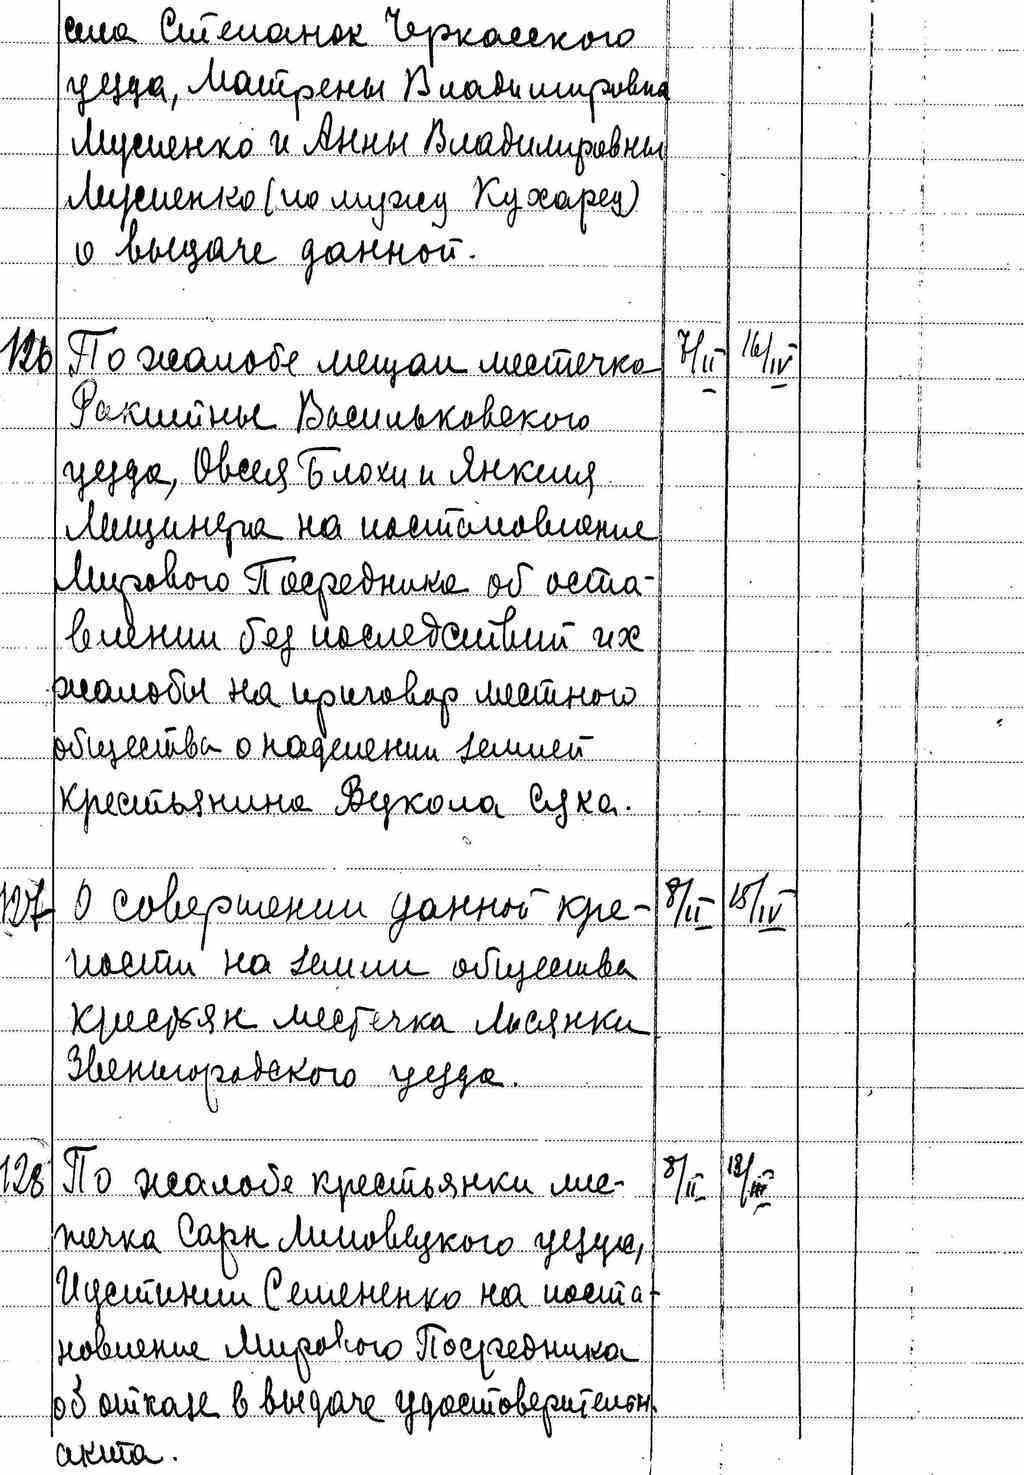 села Степанок Черкасского
уезда, Матрены Владимировна
Мусиенко и Анны Владимировны
Мусиенко (по мужу Кухарец)
о выдаче данной.
126 По жалобе мещан местечка 7/II 16/IV
Ракитны Васильковского
уезда, Овсея Блохи и Янкеля
Мещинера на постановление
Мирового Посредника об оста-
влении без последствий их
жалобы на приговор местного
общества о наделении землей
крестьянина Вукола Сука.
127 О совершении данной кре- 8/II 15/IV
пости на земли общества
крестьян местечка Лысянки
Звенигородского уезда.
128 По жалобе крестьянки мес- 8/II
течка Сарн Липовецкого уезда,
Иустинии Семененко на поста-
новление Мирового Посредника
об отказе в выдаче удостоверительн.
акта.